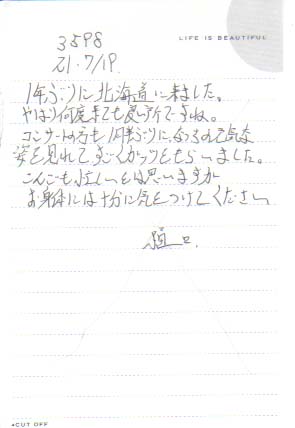 3598
LIFE IS BEAUTIFUL
21.7/19.
1年ぶりに北海道に来ました。
やはり何度来ても良い所ですね。
コンサートの方も1年ぶりに、元気な
姿を見れてすごくガッツをもらいました。
こんごも忙しいとは思いますが
お身体には十分に気をつけてください
CUT OFF